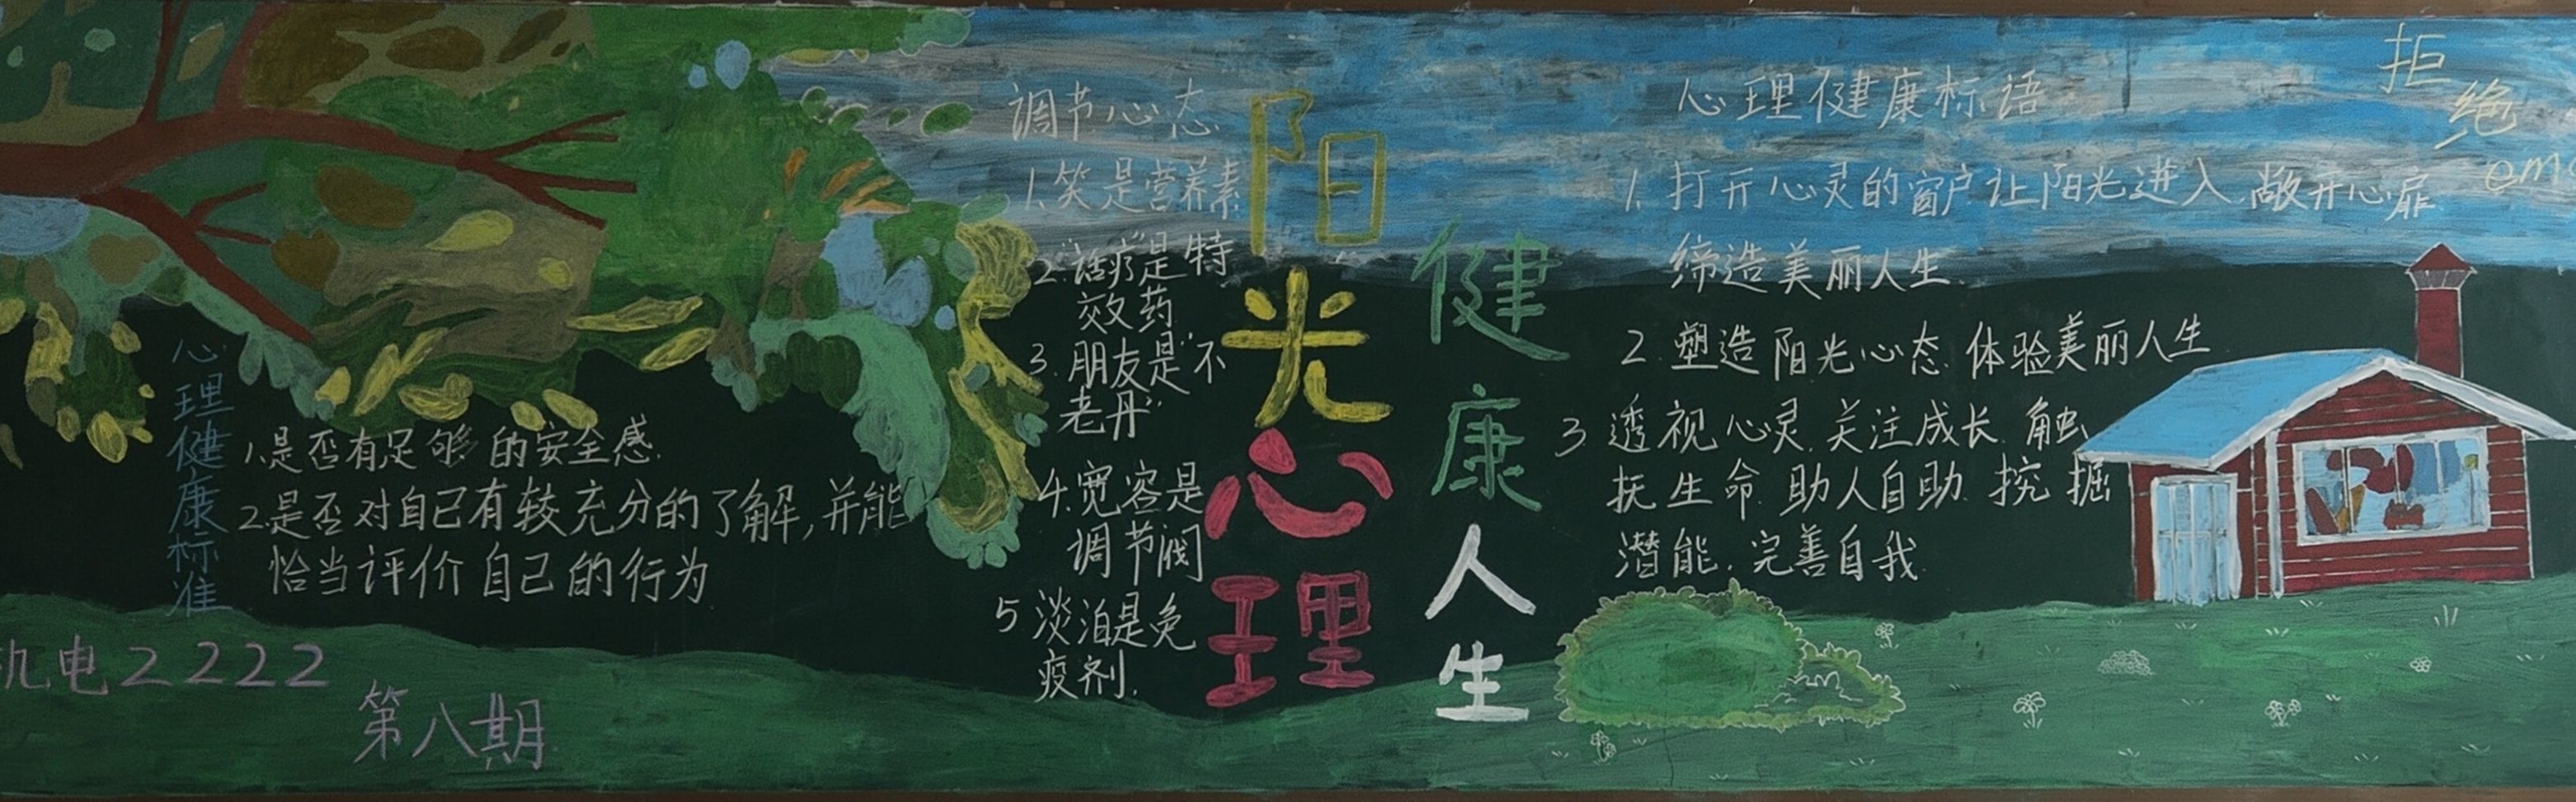 心理健康标准
1.是否有足够的安全感.
2.是否对自己有较充分的了解,并能
恰当评价自己的行为
机电2222
第八期
调节心态
1.笑是营养素
2."话疗"是特
效药
3.朋友是"不
老丹"
4.宽容是
调节阀
5淡泊是免
疫剂.
阳光心理
健康人生
心理健康标语
1.打开心灵的窗户让阳光进入.敞开心扉
缔造美丽人生.
2.塑造阳光心态.体验美丽人生
3透视心灵.关注成长.触
抚生命.助人自助.挖掘
潜能.完善自我.
拒绝